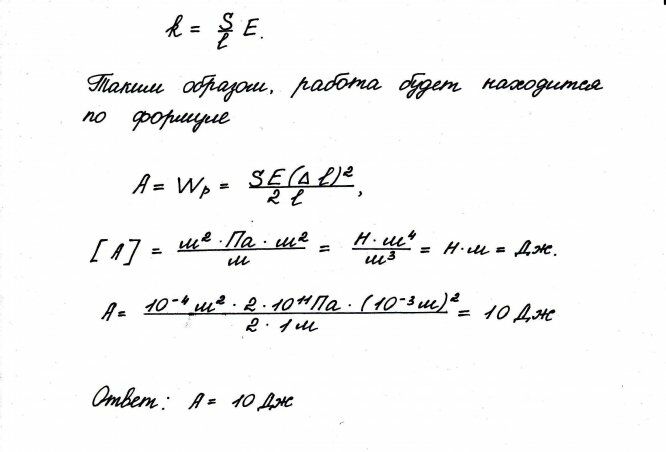 k = S/l E.
Таким образом, работа будет находится
по формуле
A = Wp = SE(Δl)²/2l,
[A] = м²·Па·м²/м = Н·м⁴/м³ = Н·м = Дж.
A = 10⁻⁴м²·2·10¹¹Па·(10⁻³м)²/2·1м = 10 Дж
Ответ: A = 10 Дж